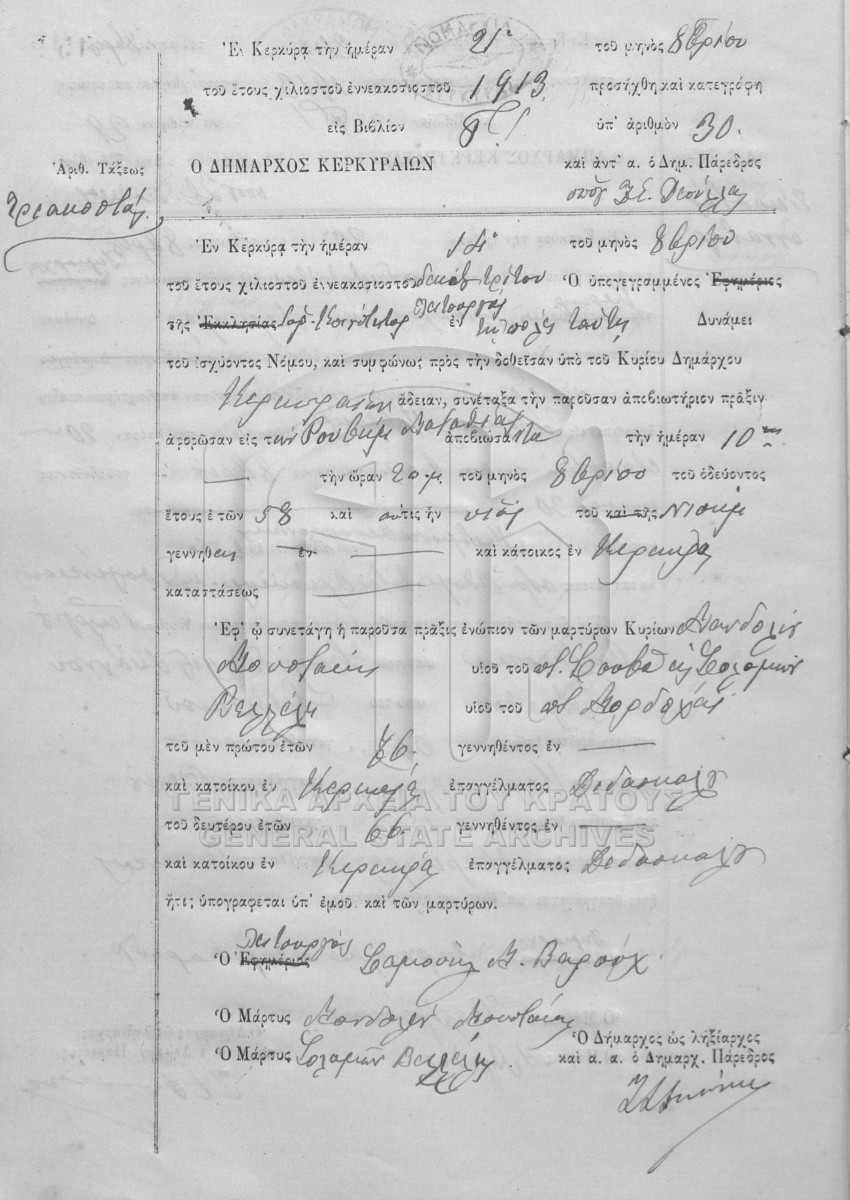 Ἐν Κερκύρᾳ τὴν ἡμέραν 21ῃ τοῦ μηνὸς 8βρίου
τοῦ ἔτους χιλιοστοῦ ἐννεακοσιοστοῦ 1913 προσήχθη καὶ κατεγράφη
εἰς Βιβλίον ὑπ' ἀριθμὸν 30.
Ο ΔΗΜΑΡΧΟΣ ΚΕΡΚΥΡΑΙΩΝ καὶ ἀντ' α. ὁ Δημ. Πάρεδρος
Ἀριθ. Τάξεως
Τριακοστὴ
Ἐν Κερκύρᾳ τὴν ἡμέραν 14ῃ τοῦ μηνὸς 8βρίου
τοῦ ἔτους χιλιοστοῦ ἐννεακοσιοστοῦ δεκάτου τρίτου Ὁ ὑπογεγραμμένος Ἐφημέριος
τῆς Ἐκκλησίας Ἰσρ. Κοινότητος λειτουργὸς ἐν τῇ πόλει ταύτῃ Δυνάμει
τοῦ ἰσχύοντος Νόμου, καὶ συμφώνως πρὸς τὴν δοθεῖσαν ὑπὸ τοῦ Κυρίου Δημάρχου
Κερκυραίων ἄδειαν, συνέταξα τὴν παροῦσαν ἀπεβιωτήριον πρᾶξιν
ἀφορῶσαν εἰς τὸν Ρουβὴμ Ματαθίαν ἀποβιώσαντα τὴν ἡμέραν 10ην
τὴν ὥραν 2 π.μ. τοῦ μηνὸς 8βρίου τοῦ ὁδεύοντος
ἔτους ἐτῶν 58 καὶ οὗτις ἦν υἱὸς τοῦ καὶ τῆς Νισὴμ
γεννηθεὶς ἐν καὶ κάτοικος ἐν Κερκύρᾳ
καταστάσεως
Ἐφ' ᾧ συνετάγη ἡ παροῦσα πρᾶξις ἐνώπιον τῶν μαρτύρων Κυρίων Μανδολὶν
Μουσταΐκη υἱοῦ τοῦ π. Σολομὼν
Βελλέλη υἱοῦ τοῦ π. Μορδοχάη
τοῦ μὲν πρώτου ἐτῶν 76. γεννηθέντος ἐν
καὶ κατοίκου ἐν Κερκύρᾳ ἐπαγγέλματος Διδασκάλου
τοῦ δευτέρου ἐτῶν 66. γεννηθέντος ἐν
καὶ κατοίκου ἐν Κερκύρᾳ ἐπαγγέλματος Διδασκάλου
ἥτις ὑπογράφεται ὑπ' ἐμοῦ καὶ τῶν μαρτύρων.
λειτουργὸς
Ὁ Ἐφημέριος Σαμουὴλ Μ. Βαροὺχ
Ὁ Μάρτυς Μανδολὶν Μουσταΐκη
Ὁ Μάρτυς Σολομὼν Βελλέλης
Ὁ Δήμαρχος ὡς ληξίαρχος
καὶ α. α. ὁ Δημαρχ. Πάρεδρος
ΓΕΝΙΚΑ ΑΡΧΕΙΑ ΤΟΥ ΚΡΑΤΟΥΣ
GENERAL STATE ARCHIVES